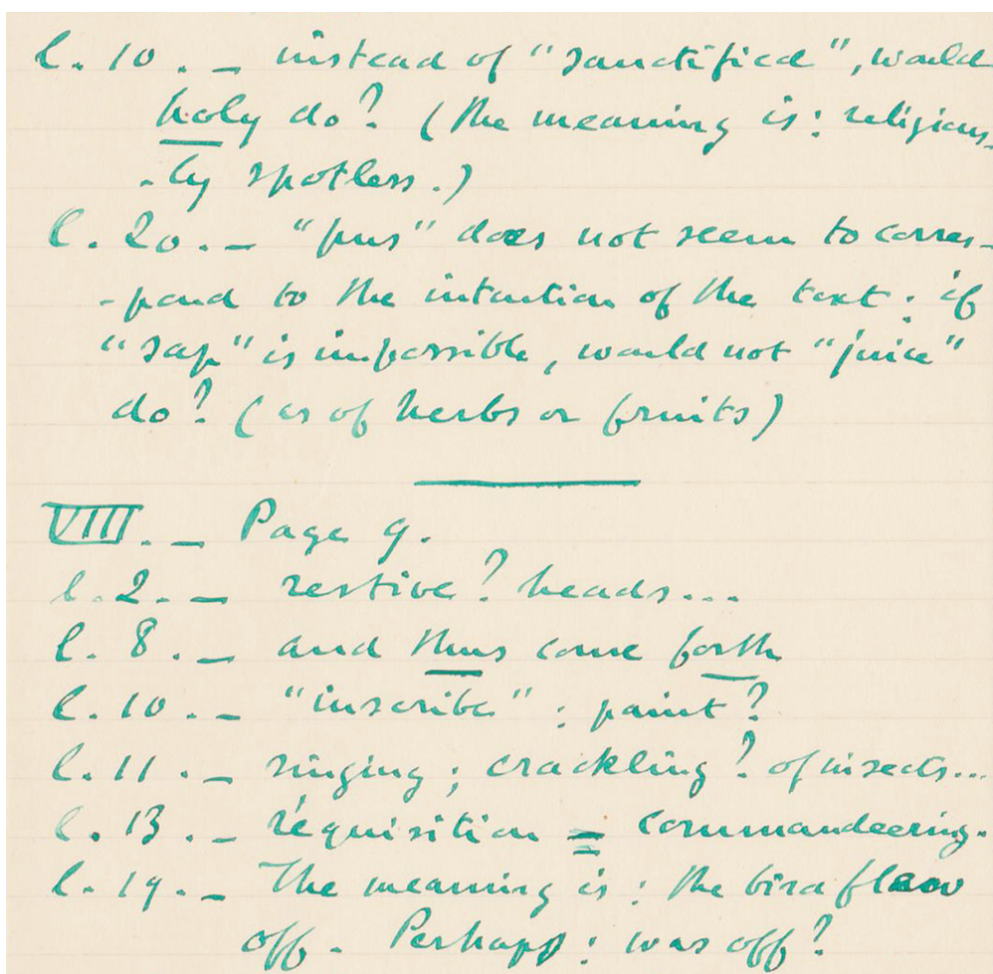 l. 10. _ instead of "sanctified", would
holy do? (the meaning is: religious-
-ly spotless.)
l. 20. _ "pus" does not seem to corres-
-pond to the intention of the text: if
"sap" is impossible, would not "juice"
do? (as of herbs or fruits)
VIII. _ Page 9.
l. 2. _ restive? heads...
l. 8. _ and thus come forth
l. 10. _ "inscribe": paint?
l. 11. _ singing; crackling? of insects...
l. 13. _ réquisition = commandeering.
l. 19. _ The meaning is: the bird flew
off. Perhaps: was off?